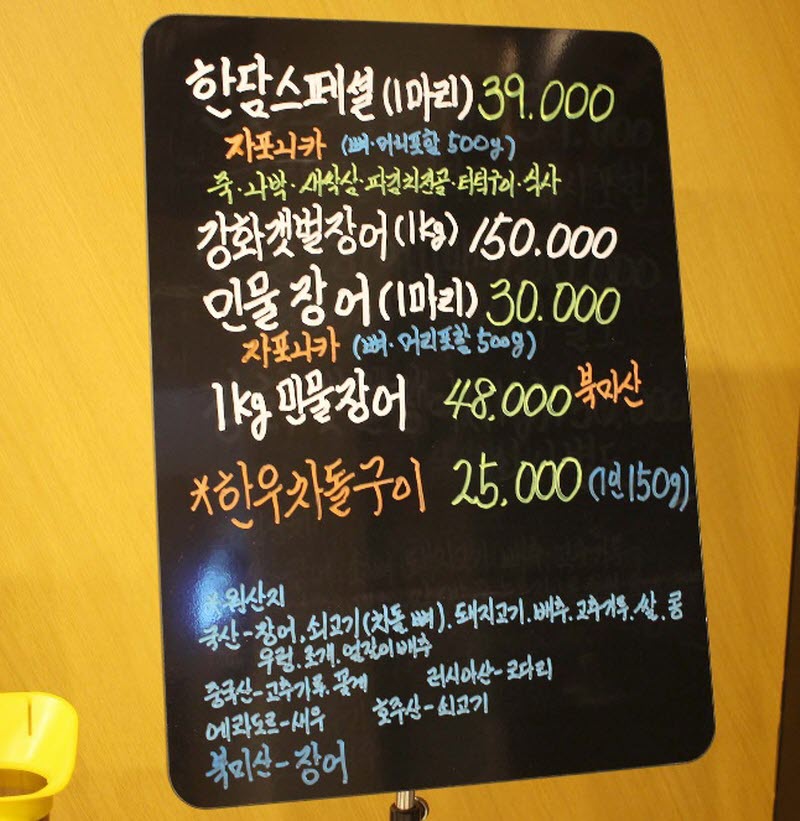 한담스페셜(1마리) 39.000
자포니카 (뼈·머리포함 500g)
죽·나박·새싹삼·파김치전골·더덕구이·식사
강화갯벌장어(1kg) 150.000
민물장어(1마리) 30.000
자포니카 (뼈·머리포함 500g)
1kg 민물장어 48.000 북미산
*한우차돌구이 25.000 (1인 150g)
*원산지
국산-장어, 쇠고기(차돌 뼈), 돼지고기, 배추, 고추가루, 쌀, 콩
우렁, 조개, 얼갈이배추
중국산-고추가루, 꽃게 러시아산-코다리
에콰도르-새우 호주산-쇠고기
북미산-장어